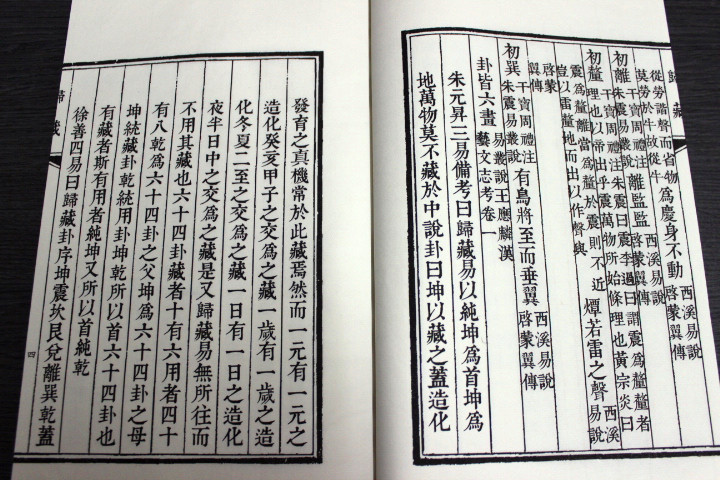 歸藏
從勞諧聲而省物為慶身不動西溪易說
莫勞於牛故從牛啓蒙翼傳
初離朱震易叢說離監監西溪易說
干寶周禮注啓蒙翼傳
初釐干寶周禮注朱震曰震李過曰謂震為釐釐者
理也以帝出乎震萬物所始條理也黃宗炎曰
震為釐離當為釐於震則不近燂若雷之聲西溪易說
豈以雷釐地而出以作聲與啓蒙翼傳
初巽干寶周禮注有鳥將至而垂翼西溪易說
朱震易叢說啓蒙翼傳
卦皆六畫易叢說王應麟漢
藝文志考卷一
朱元昇三易備考曰歸藏易以純坤為首坤為
地萬物莫不藏於中說卦曰坤以藏之蓋造化
發育之真機常於此藏焉然而一元有一元之
造化癸亥甲子之交為之藏一歲有一歲之造
化冬夏二至之交為之藏一日有一日之造化
夜半日中之交為之藏是又歸藏易無所往而
不用其藏也六十四卦藏者十有六用者四十
有八乾為六十四卦之父坤為六十四卦之母
坤統藏卦乾統用卦坤乾所以首六十四卦也
有藏者斯有用者純坤又所以首純乾
徐善四易曰歸藏卦序坤震坎艮兌離巽乾蓋
歸藏
四